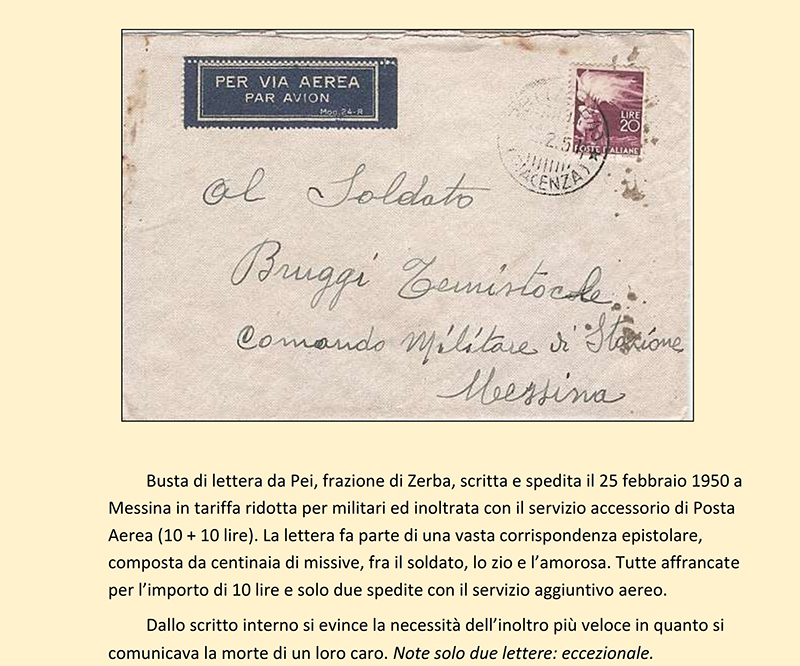 PER VIA AEREA
PAR AVION
Mod. 24-R
LIRE
20
POSTE ITALIANE
(PIACENZA)
Al Soldato
Bruggi Temistocle
Comando Militare di Stazione
Messina
Busta di lettera da Pei, frazione di Zerba, scritta e spedita il 25 febbraio 1950 a
Messina in tariffa ridotta per militari ed inoltrata con il servizio accessorio di Posta
Aerea (10 + 10 lire). La lettera fa parte di una vasta corrispondenza epistolare,
composta da centinaia di missive, fra il soldato, lo zio e l’amorosa. Tutte affrancate
per l’importo di 10 lire e solo due spedite con il servizio aggiuntivo aereo.
Dallo scritto interno si evince la necessità dell’inoltro più veloce in quanto si
comunicava la morte di un loro caro. Note solo due lettere: eccezionale.